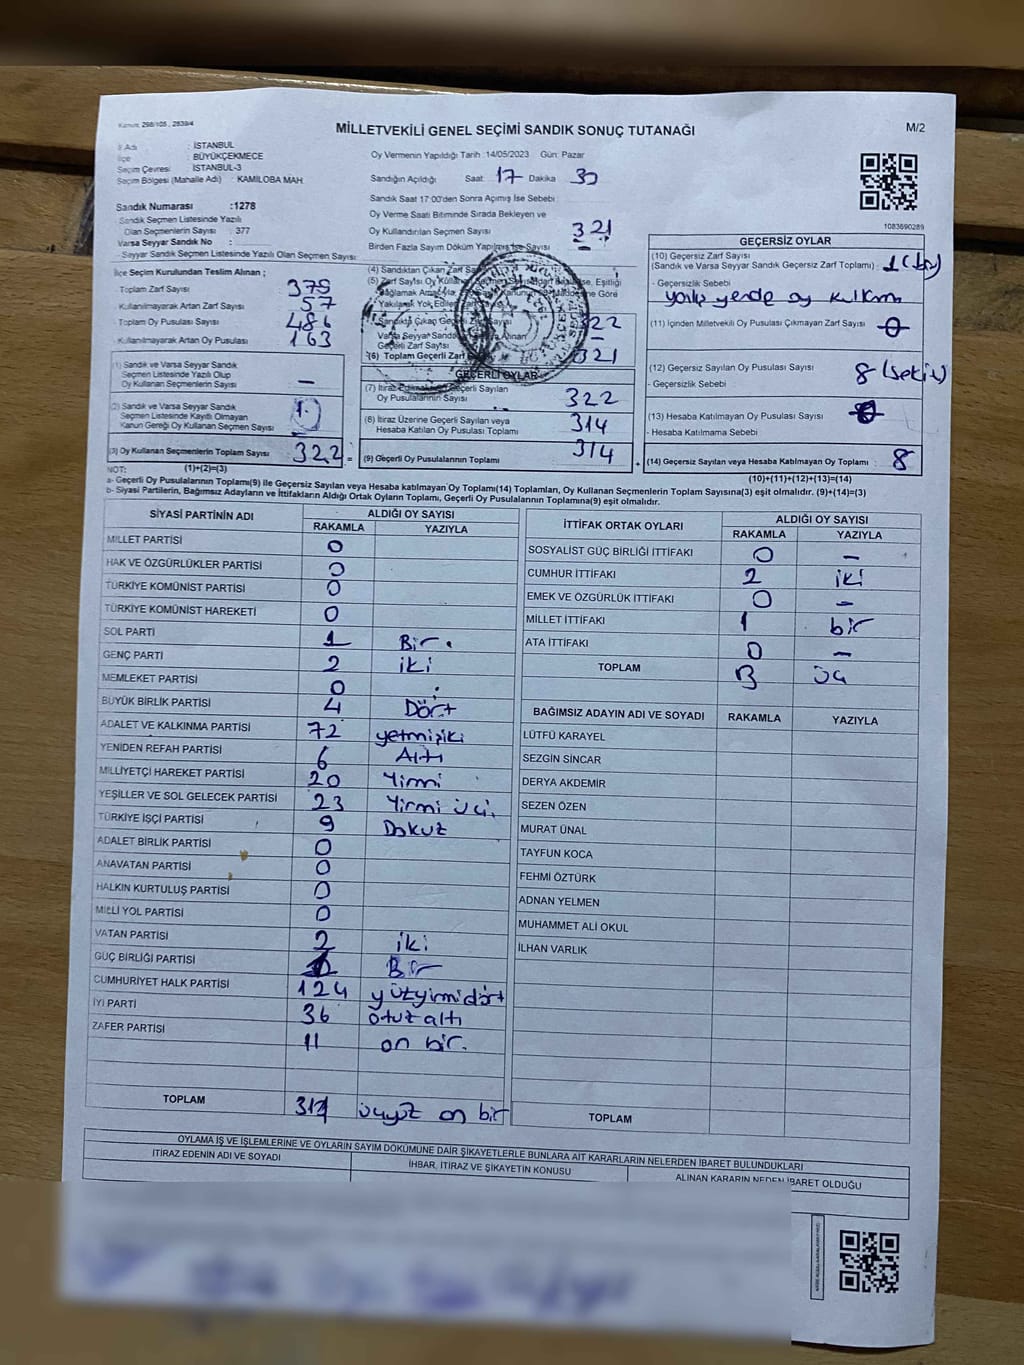 Kanun: 298/105 , 2839/4
MİLLETVEKİLİ GENEL SEÇİMİ SANDIK SONUÇ TUTANAĞI
M/2
İl Adı : İSTANBUL
İlçe : BÜYÜKÇEKMECE
Seçim Çevresi : İSTANBUL-3
Seçim Bölgesi (Mahalle Adı) : KAMİLOBA MAH
Oy Vermenin Yapıldığı Tarih :14/05/2023 Gün: Pazar
Sandığın Açıldığı Saat: 17 Dakika 30
Sandık Saat 17:00'den Sonra Açımış İse Sebebi
Sandık Numarası :1278
Sandık Seçmen Listesinde Yazılı
Olan Seçmenlerin Sayısı : 377
Varsa Seyyar Sandık No :
Seyyar Sandık Seçmen Listesinde Yazılı Olan Seçmen Sayısı:
Oy Verme Saati Bitiminde Sırada Bekleyen ve
Oy Kullandırılan Seçmen Sayısı 321
Birden Fazla Sayım Döküm Yapılmış İse Sayısı
1083690289
İlçe Seçim Kurulundan Teslim Alınan ;
Toplam Zarf Sayısı 379
Kullanılmayarak Artan Zarf Sayısı 57
Toplam Oy Pusulası Sayısı 486
Kullanılmayarak Artan Oy Pusulası 163
(1) Sandık ve Varsa Seyyar Sandık
Seçmen Listesinde Yazılı Olup
Oy Kullanan Seçmenlerin Sayısı –
(2) Sandık ve Varsa Seyyar Sandık
Seçmen Listesinde Kayıtlı Olmayan
Kanun Gereği Oy Kullanan Seçmen Sayısı 1
(3) Oy Kullanan Seçmenlerin Toplam Sayısı 322
(4) Sandıktan Çıkan Zarf
(5) Zarf Sayısı Oy
Sandıkta Çıkan Geçerli Zarf Sayısı 322
Geçerli Zarf Sayısı –
(6) Toplam Geçerli Zarf 321
GEÇERLİ OYLAR
(7) İtiraz Edilmeden Geçerli Sayılan
Oy Pusulalarının Sayısı 322
(8) İtiraz Üzerine Geçerli Sayılan veya
Hesaba Katılan Oy Pusulası Toplamı 314
(9) Geçerli Oy Pusulalarının Toplamı 314
GEÇERSİZ OYLAR
(10) Geçersiz Zarf Sayısı
(Sandık ve Varsa Seyyar Sandık Geçersiz Zarf Toplamı) : 1 (bir)
- Geçersizlik Sebebi
yanlış yerde oy kullanma
(11) İçinden Milletvekili Oy Pusulası Çıkmayan Zarf Sayısı 0
(12) Geçersiz Sayılan Oy Pusulası Sayısı 8 (Sekiz)
- Geçersizlik Sebebi
(13) Hesaba Katılmayan Oy Pusulası Sayısı
- Hesaba Katılmama Sebebi
(14) Geçersiz Sayılan veya Hesaba Katılmayan Oy Toplamı : 8
NOT: (1)+(2)=(3)
(10)+(11)+(12)+(13)=(14)
a- Geçerli Oy Pusulalarının Toplamı(9) ile Geçersiz Sayılan veya Hesaba katılmayan Oy Toplamı(14) Toplamları, Oy Kullanan Seçmenlerin Toplam Sayısına(3) eşit olmalıdır. (9)+(14)=(3)
b- Siyasi Partilerin, Bağımsız Adayların ve İttifakların Aldığı Ortak Oyların Toplamı, Geçerli Oy Pusulalarının Toplamına(9) eşit olmalıdır.
SİYASİ PARTİNİN ADI
ALDIĞI OY SAYISI
RAKAMLA YAZIYLA
MİLLET PARTİSİ 0
HAK VE ÖZGÜRLÜKLER PARTİSİ 0
TÜRKİYE KOMÜNİST PARTİSİ 0
TÜRKİYE KOMÜNİST HAREKETİ 0
SOL PARTİ 1 Bir.
GENÇ PARTİ 2 iki
MEMLEKET PARTİSİ 0
BÜYÜK BİRLİK PARTİSİ 4 Dört
ADALET VE KALKINMA PARTİSİ 72 yetmişiki
YENİDEN REFAH PARTİSİ 6 Altı
MİLLİYETÇİ HAREKET PARTİSİ 20 Yirmi
YEŞİLLER VE SOL GELECEK PARTİSİ 23 Yirmi üç.
TÜRKİYE İŞÇİ PARTİSİ 9 Dokuz
ADALET BİRLİK PARTİSİ 0
ANAVATAN PARTİSİ 0
HALKIN KURTULUŞ PARTİSİ 0
MİLLİ YOL PARTİSİ 0
VATAN PARTİSİ 2 iki
GÜÇ BİRLİĞİ PARTİSİ 1 Bir
CUMHURİYET HALK PARTİSİ 124 yüzyirmidört
İYİ PARTİ 36 otuz altı
ZAFER PARTİSİ 11 on bir.
TOPLAM 311 üçyüz on bir
İTTİFAK ORTAK OYLARI
ALDIĞI OY SAYISI
RAKAMLA YAZIYLA
SOSYALİST GÜÇ BİRLİĞİ İTTİFAKI 0 –
CUMHUR İTTİFAKI 2 iki
EMEK VE ÖZGÜRLÜK İTTİFAKI 0 –
MİLLET İTTİFAKI 1 bir
ATA İTTİFAKI 0 –
TOPLAM 3 üç
BAĞIMSIZ ADAYIN ADI VE SOYADI RAKAMLA YAZIYLA
LÜTFÜ KARAYEL
SEZGİN SİNCAR
DERYA AKDEMİR
SEZEN ÖZEN
MURAT ÜNAL
TAYFUN KOCA
FEHMİ ÖZTÜRK
ADNAN YELMEN
MUHAMMET ALİ OKUL
İLHAN VARLIK
TOPLAM
OYLAMA İŞ VE İŞLEMLERİNE VE OYLARIN SAYIM DÖKÜMÜNE DAİR ŞİKAYETLERLE BUNLARA AİT KARARLARIN NELERDEN İBARET BULUNDUKLARI
İTİRAZ EDENİN ADI VE SOYADI
İHBAR, İTİRAZ VE ŞİKAYETİN KONUSU
ALINAN KARARIN NEDEN İBARET OLDUĞU